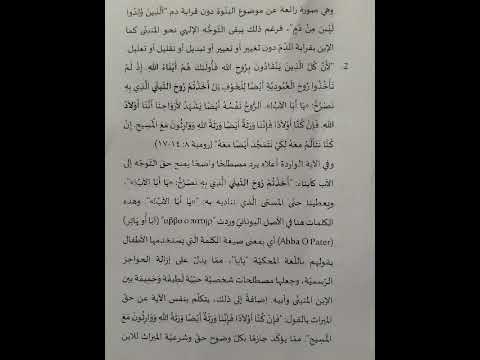 وهي صورة رائعة عن موضوع البنوّة دون قرابة دم "الَّذِينَ وُلِدُوا
لَيْسَ مِنْ دَمٍ". فرغم ذلك يبقى التوجّه الإلهي نحو المتبنّى كما
الإبن بقرابة الدّم دون تغيير أو تعيير أو تبديل أو تقليل أو تعليل
2. "لأَنَّ كُلَّ الَّذِينَ يَنْقَادُونَ بِرُوحِ اللهِ فَأُولئِكَ هُمْ أَبْنَاءُ اللهِ. إِذْ لَمْ
تَأْخُذُوا رُوحَ الْعُبُودِيَّةِ أَيْضًا لِلْخَوْفِ بَلْ أَخَذْتُمْ رُوحَ التَّبَنِّي الَّذِي بِهِ
نَصْرُخُ: «يَا أَبَا الآبُ!». اَلرُّوحُ نَفْسُهُ أَيْضًا يَشْهَدُ لأَرْوَاحِنَا أَنَّنَا أَوْلاَدُ
اللهِ. فَإِنْ كُنَّا أَوْلاَدًا فَإِنَّنَا وَرَثَةٌ أَيْضًا وَرَثَةُ اللهِ وَوَارِثُونَ مَعَ الْمَسِيحِ. إِنْ
كُنَّا نَتَأَلَّمُ مَعَهُ لِكَيْ نَتَمَجَّدَ أَيْضًا مَعَهُ" (رومية ٨: ١٤-١٧)
وفي الآية الواردة أعلاه يرد مصطلحًا واضحًا يمنح حق التوجّه إلى
الآب كأبناء: "أَخَذْتُمْ رُوحَ التَّبَنِّي الَّذِي بِهِ نَصْرُخُ: «يَا أَبَا الآبُ!»".
ويعطينا حتّى المسمّى الّذي نناديه به: "«يَا أَبَا الآبُ!»". وهذه
الكلمات هنا في الأصل اليوناني وردت "αββα ο πατηρ" (ابَا أو پَاتِر)
(Abba O Pater) أي بمعنى صيغة الكلمة الّتي يستخدمها الأطفال
بقولهم باللّغة المحكيّة "بابا". ممّا يدلّ على إزالة الحواجز
الرسميّة، وجعلها مصطلحات شخصيّة حبّيّة لطيفة وحميمة بين
الإبن المتبنّى وأبيه. إضافةً إلى ذلك، يتكلّم بنفس الآية عن حق
الميراث بالقول: "فَإِنْ كُنَّا أَوْلاَدًا فَإِنَّنَا وَرَثَةٌ أَيْضًا وَرَثَةُ اللهِ وَوَارِثُونَ مَعَ
الْمَسِيحِ". ممّا يؤكّد جازمًا بكل وضوح حقّ وشرعيّة الميراث للابن